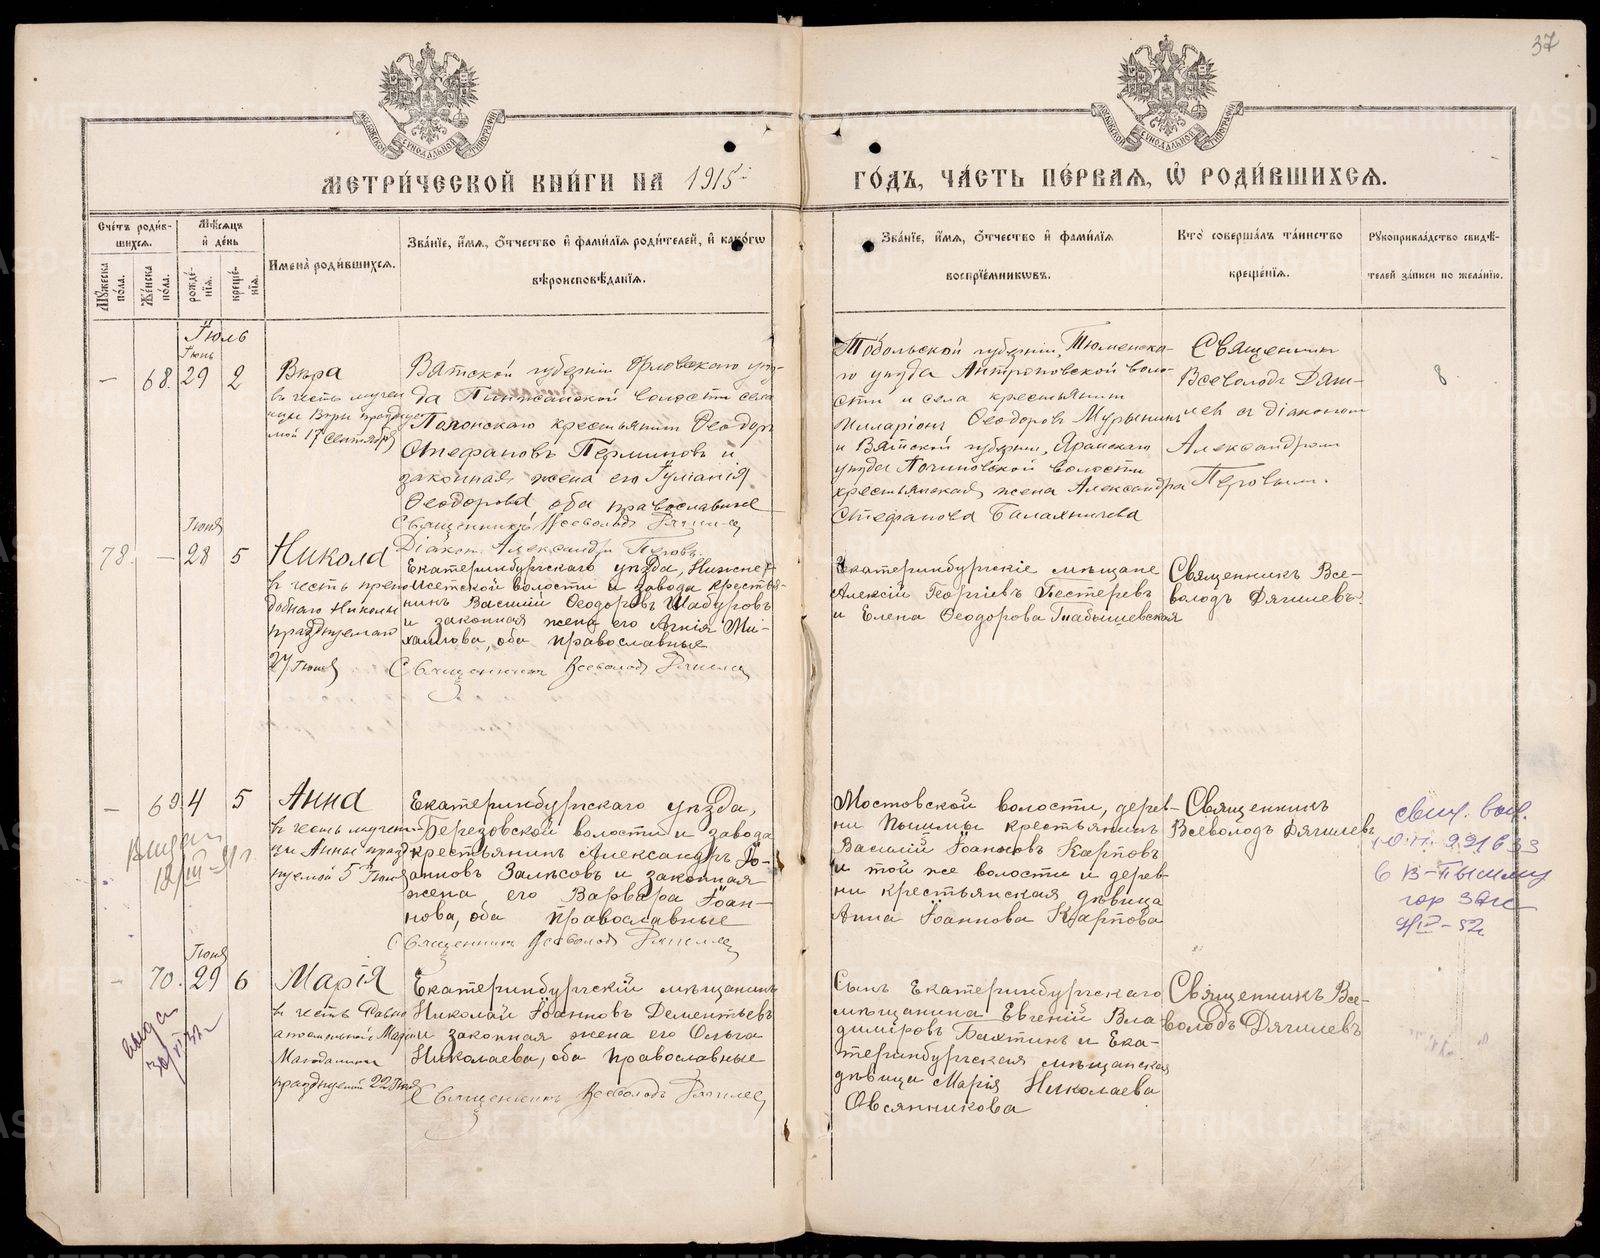 37
МОСКОВСКОЙ СѴНОДАЛЬНОЙ ТИПОГРАФІИ
МОСКОВСКОЙ СѴНОДАЛЬНОЙ ТИПОГРАФІИ
МЕТРИ́ЧЕСКОЙ КНИ́ГИ НА 1915 ГО́ДЪ, ЧА́СТЬ ПЕ́РВАЯ, Ѡ҆ РОДИ́ВШИХСЯ.
Сче́тъ роди́вшихся.
Мѣ́сяцъ и҆ де́нь
Му́жеска по́ла.
Же́нска по́ла.
рожде́нїѧ.
креще́нїѧ.
Имена̀ роди́вшихся.
Зва́нїе, и҆́мѧ, о҆́тчество и҆ фами́лїѧ роди́телей, и҆ како́гѡ
вѣроисповѣ́данїѧ.
Зва́нїе, и҆́мѧ, о҆́тчество и҆ фами́лїѧ
воспрїе́мникѡвъ.
Кто̀ соверша́лъ та́инство
креще́нїѧ.
Рукоприкла́дство свидѣ́-
телей за́писи по жела́нїю.
Іюль
Іюнь
— 68. 29 2
Вѣра
въ честь мучени
цы Вѣры празднуе
мой 17 сентября
Вятской губерніи Орловскаго уѣз-
да Пинжанской волости села
крестьянинъ Ѳеодоръ
Стефановъ Перминовъ и
законная жена его Іуліанія
Ѳеодорова, оба православные
Священникъ Всеволодъ Дягилевъ
Діаконъ Александръ Перовъ.
Тобольской губерніи, Тюменска-
го уѣзда Антроповской воло-
сти и села крестьянинъ
Иларіонъ Ѳеодоровъ Мурынинъ
и Вятской губерніи, Яранскаго
уѣзда Починовской волости
крестьянская жена Александра
Стефанова Балахничева
Священникъ
Всеволодъ Дяги-
левъ съ діакономъ
Александромъ
Перовымъ.
8
Іюня
78. — 28 5
Никола
въ честь препо
добнаго Николы
празднуемаго
27 Іюня
Екатеринбургскаго уѣзда, Нижне-
Исетской волости и завода крестья-
нинъ Василій Ѳеодоровъ Шабуровъ
и законная жена его Агнія Ми-
хаилова, оба православные
Священникъ Всеволодъ Дягилевъ
Екатеринбургскіе мѣщане
Алексій Георгіевъ Пестеревъ
и Елена Ѳеодорова Табышевская
Священникъ Все-
володъ Дягилевъ.
— 69. 4 5
Анна
въ честь мучени
цы Анны празд
нуемой 5 Іюля
Екатеринбургскаго уѣзда,
Березовской волости и завода
крестьянинъ Александръ Іо-
анновъ Залѣсовъ и законная
жена его Варвара Іоан-
нова, оба православные
Священникъ Всеволодъ Дягилевъ
Мостовской волости, дерев-
ни Пышмы крестьянинъ
Василій Іоанновъ Карповъ
и той же волости и дерев-
ни крестьянская дѣвица
Анна Іоаннова Карпова
Священникъ
Всеволодъ Дягилевъ
выдан
12/III-31 г.
свид. выд.
6 В-Пышму
гор ЗАГС
Іюня
— 70. 29 6
Марія
въ честь Равно
апостольной Маріи
Магдалины
празднуемой 22 Іюля
Екатеринбургскій мѣщанинъ
Николай Іоанновъ Дементьевъ
и законная жена его Ольга
Николаева, оба православные
Священникъ Всеволодъ Дягилевъ
Сынъ Екатеринбургскаго
мѣщанина Евгеній Вла-
диміровъ Бахтинъ и Ека-
теринбургская мѣщанская
дѣвица Марія Николаева
Овсянникова
Священникъ Все-
володъ Дягилевъ
выдан
METRIKI.GASO-URAL.RU